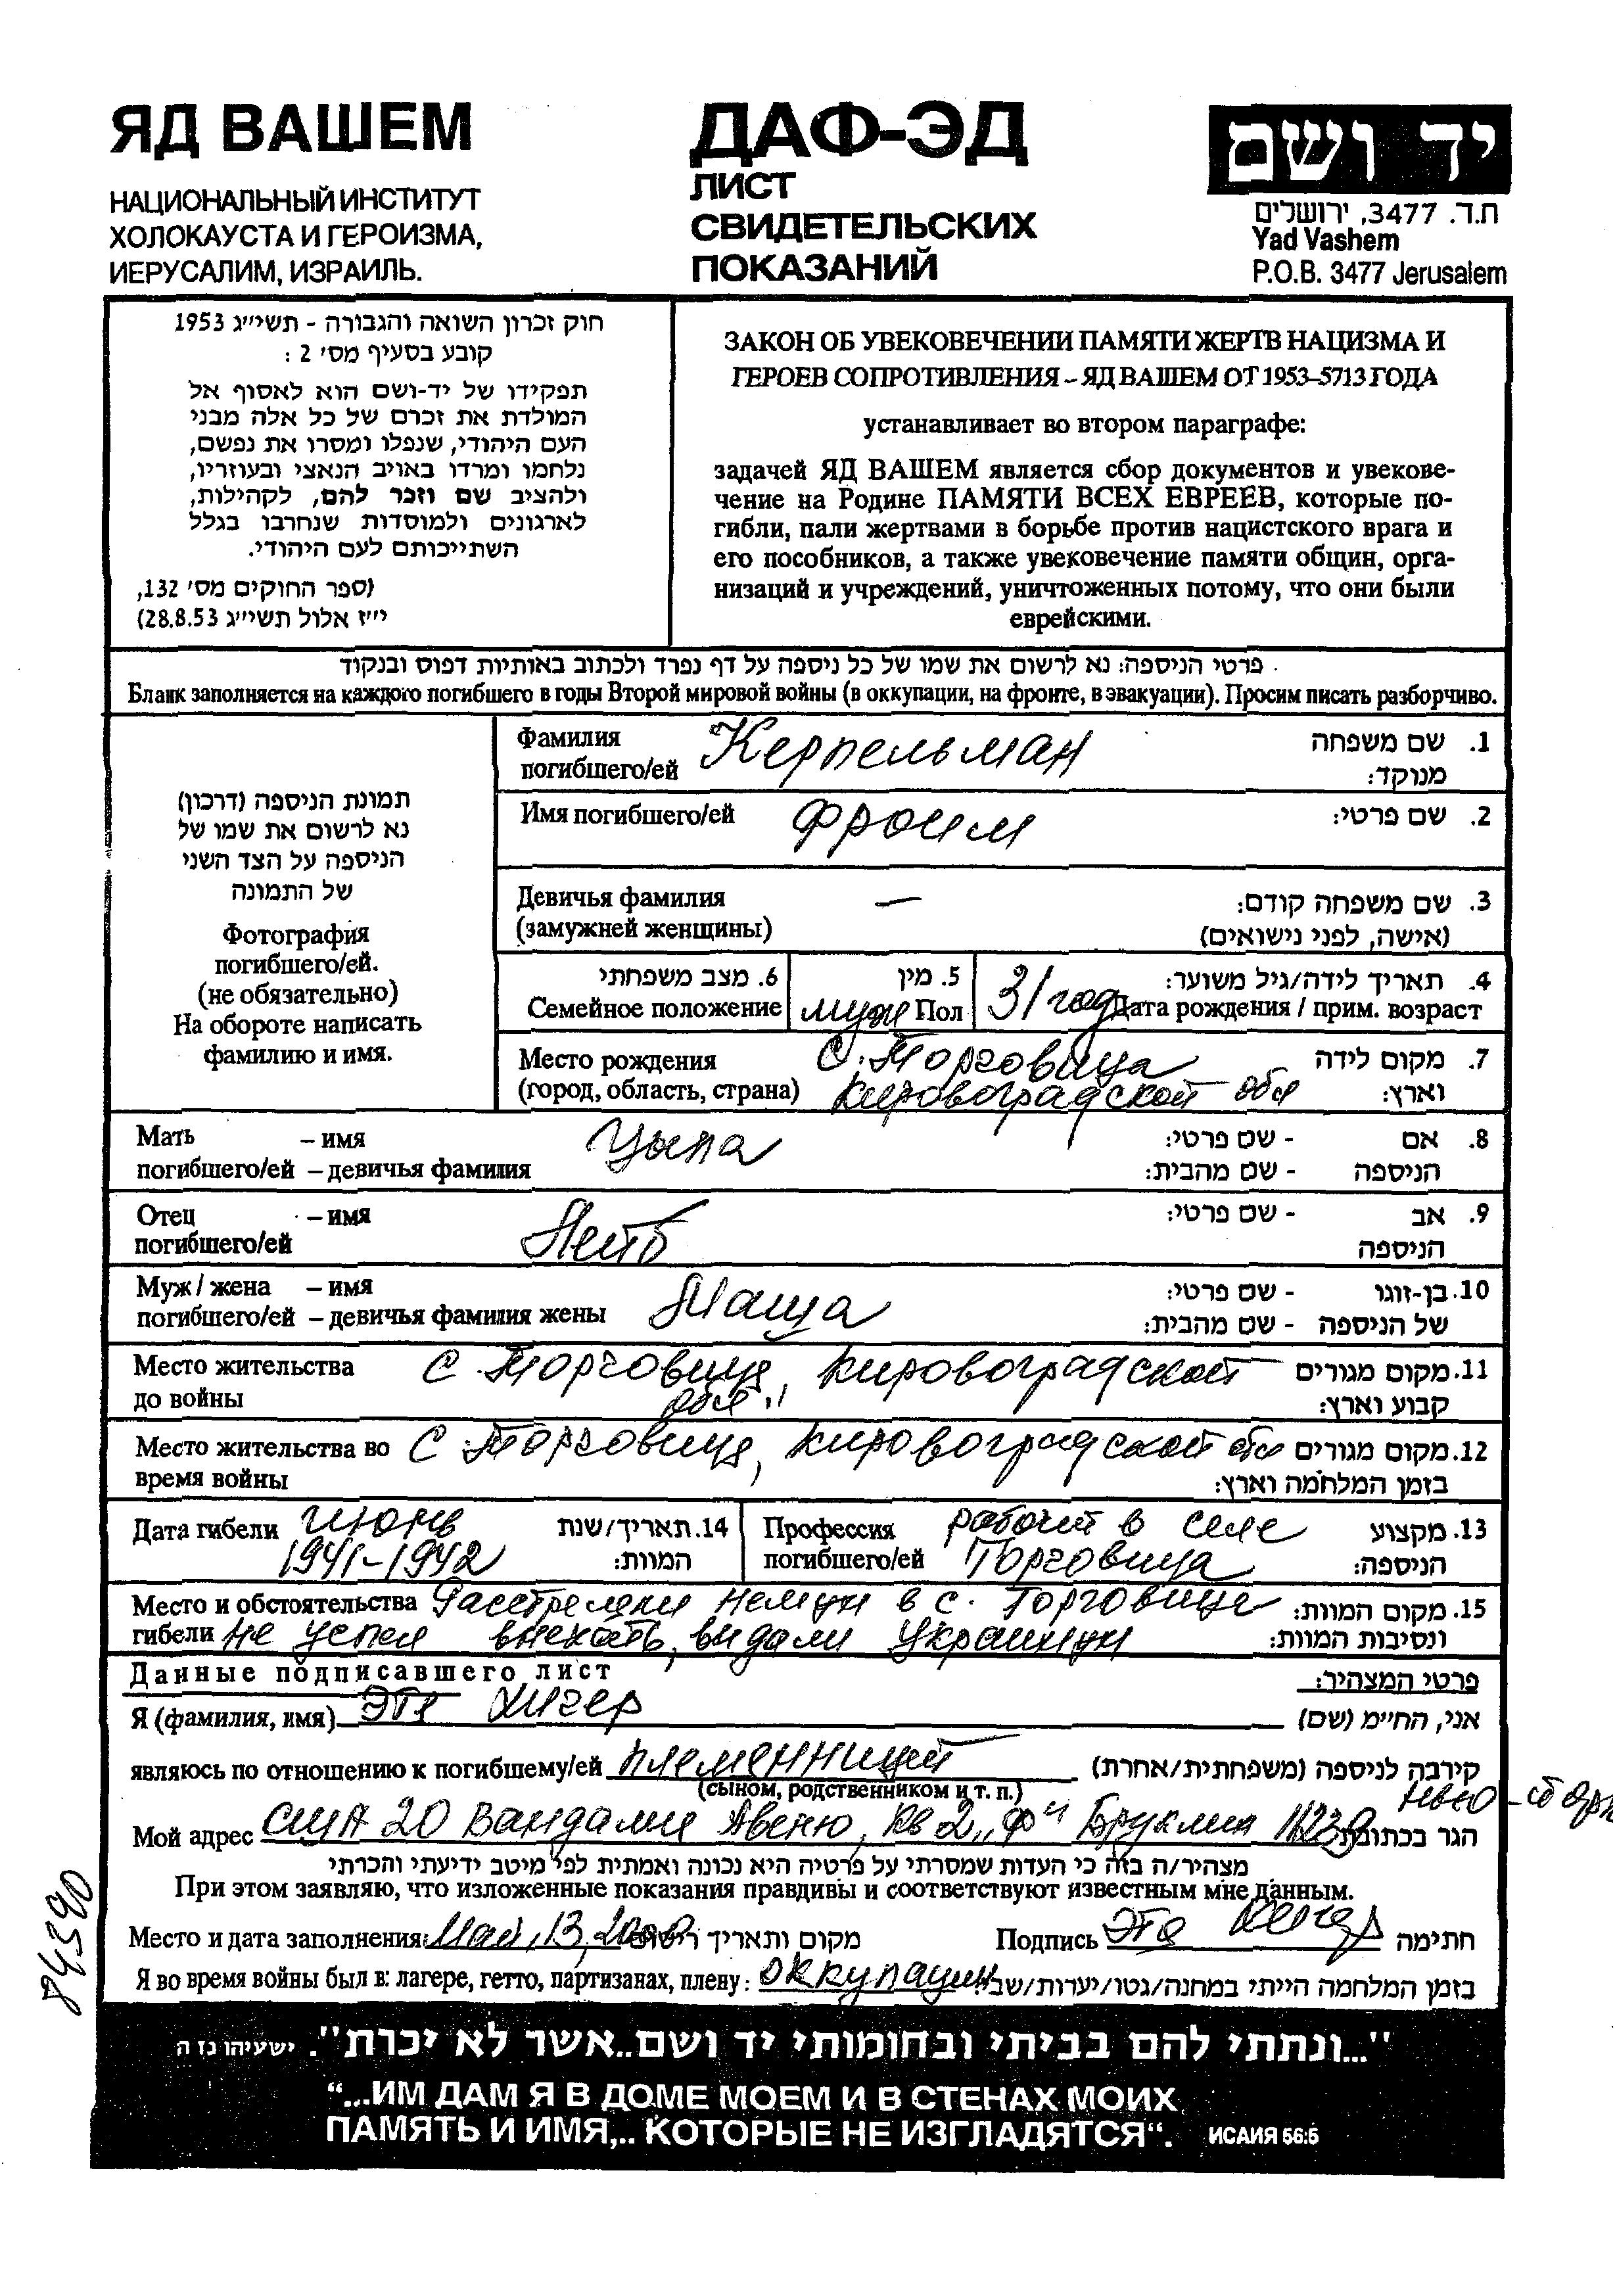 ЯД ВАШЕМ
НАЦИОНАЛЬНЫЙ ИНСТИТУТ
ХОЛОКАУСТА И ГЕРОИЗМА,
ИЕРУСАЛИМ, ИЗРАИЛЬ.
ДАФ-ЭД
ЛИСТ
СВИДЕТЕЛЬСКИХ
ПОКАЗАНИЙ
יד ושם
ת.ד. 3477, ירושלים
Yad Vashem
P.O.B. 3477 Jerusalem
חוק זכרון השואה והגבורה - תשי״ג 1953
קובע בסעיף מס׳ 2 :
תפקידו של יד-ושם הוא לאסוף אל
המולדת את זכרם של כל אלה מבני
העם היהודי, שנפלו ומסרו את נפשם,
נלחמו ומרדו באויב הנאצי ובעוזריו,
ולהציב שם וזכר להם, לקהילות,
לארגונים ולמוסדות שנחרבו בגלל
השתייכותם לעם היהודי.
(ספר החוקים מס׳ 132,
י״ז אלול תשי״ג 28.8.53)
ЗАКОН ОБ УВЕКОВЕЧЕНИИ ПАМЯТИ ЖЕРТВ НАЦИЗМА И
ГЕРОЕВ СОПРОТИВЛЕНИЯ – ЯД ВАШЕМ ОТ 1953–5713 ГОДА
устанавливает во втором параграфе:
задачей ЯД ВАШЕМ является сбор документов и увекове-
чение на Родине ПАМЯТИ ВСЕХ ЕВРЕЕВ, которые по-
гибли, пали жертвами в борьбе против нацистского врага и
его пособников, а также увековечение памяти общин, орга-
низаций и учреждений, уничтоженных потому, что они были
еврейскими.
פרטי הניספה: נא לרשום את שמו של כל ניספה על דף נפרד ולכתוב באותיות דפוס ובנקוד
Бланк заполняется на каждого погибшего в годы Второй мировой войны (в оккупации, на фронте, в эвакуации). Просим писать разборчиво.
תמונת הניספה (דרכון)
נא לרשום את שמו של
הניספה על הצד השני
של התמונה
Фотография
погибшего/ей.
(не обязательно)
На обороте написать
фамилию и имя.
Фамилия Керпельман 1. שם משפחה
погибшего/ей מנוקד:
Имя погибшего/ей Фроим 2. שם פרטי:
Девичья фамилия — 3. שם משפחה קודם:
(замужней женщины) (אישה, לפני נישואים)
6. מצב משפחתי 5. מין 4. תאריך לידה/גיל משוער:
Семейное положение муж Пол 31 год Дата рождения / прим. возраст
Место рождения с. Торговица 7. מקום לידה
(город, область, страна) Кировоградской обл וארץ:
Мать – имя Цыпа 8. אם - שם פרטי:
погибшего/ей – девичья фамилия הניספה - שם מהבית:
Отец – имя Лейб 9. אב - שם פרטי:
погибшего/ей הניספה
Муж / жена – имя Маша 10. בן-זוגו - שם פרטי:
погибшего/ей – девичья фамилия жены של הניספה - שם מהבית:
Место жительства с. Торговице, Кировоградской 11. מקום מגורים
до войны обл קבוע וארץ:
Место жительства во с. Торговице, Кировоградской обл 12. מקום מגורים
время войны בזמן המלחמה וארץ:
Дата гибели июнь 14. תאריך/שנת
1941–1942 המוות:
Профессия рабочий в селе 13. מקצוע
погибшего/ей Торговица הניספה:
Место и обстоятельства Расстреляли немцы в с. Торговице 15. מקום המוות:
гибели не успел выехать, видали Украинцы ונסיבות המוות:
Данные подписавшего лист פרטי המצהיר:
Я (фамилия, имя) Этя Хигер אני, החיימ (שם)
являюсь по отношению к погибшему/ей племенницей קירבה לניספה (משפחתית/אחרת)
(сыном, родственником и т. п.)
Нью-Йорк
Мой адрес США 20 Вандалия Авеню, кв 2 „Ф" Бруклин 11239 הגר בכתובת
מצהיר/ה בזה כי העדות שמסרתי על פרטיה היא נכונה ואמתית לפי מיטב ידיעתי והכרתי
При этом заявляю, что изложенные показания правдивы и соответствуют известным мне данным.
Место и дата заполнения: Май, 13, 2000 מקום ותאריך רישום Подпись Этя Хигер חתימה
Я во время войны был в: лагере, гетто, партизанах, плену: оккупации בזמן המלחמה הייתי במחנה/גטו/יערות/שבי:
84390
"...ונתתי להם בביתי ובחומותי יד ושם..אשר לא יכרת". ישעיהו נז ה
“...ИМ ДАМ Я В ДОМЕ МОЕМ И В СТЕНАХ МОИХ
ПАМЯТЬ И ИМЯ,.. КОТОРЫЕ НЕ ИЗГЛАДЯТСЯ“. ИСАИЯ 56:5